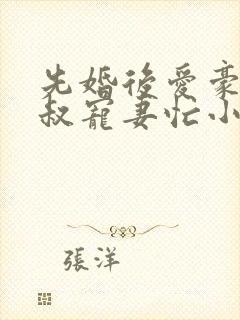 先婚後愛豪
叔寵妻忙小
張洋